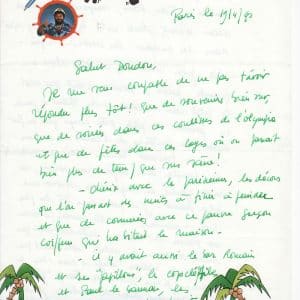 Paris le 19/4/93
Salut Doudou,
Je me sens coupable de ne pas t'avoir
répondu plus tôt ! Que de souvenirs bien sûr,
que de soirées dans ces coulisses de l'olympia
et que de fêtes dans ces loges où on passait
bien plus de temps que sur scène !
- chérir avec le parisienne, les décors
que l'on passait des nuits à finir à peindre
et que de conneries avec ce pauvre garçon
coiffeur qui habitait la maison -
- il y avait aussi le bar Romain
et ses "papillons", le
et Paul le barman, les